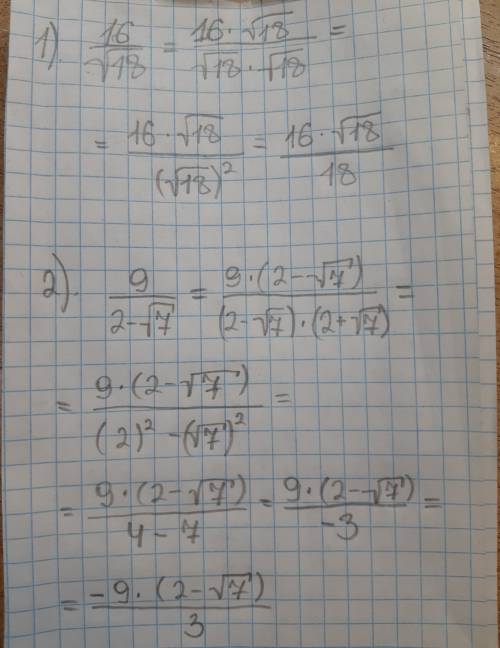 1). 16/√18 = 16·√18/√18·√18 =
= 16·√18/(√18)² = 16·√18/18
2). 9/2-√7 = 9·(2-√7)/(2-√7)·(2+√7) =
= 9·(2-√7)/(2)²-(√7)² =
= 9·(2-√7)/4-7 = 9·(2-√7)/-3 =
= -9·(2-√7)/3